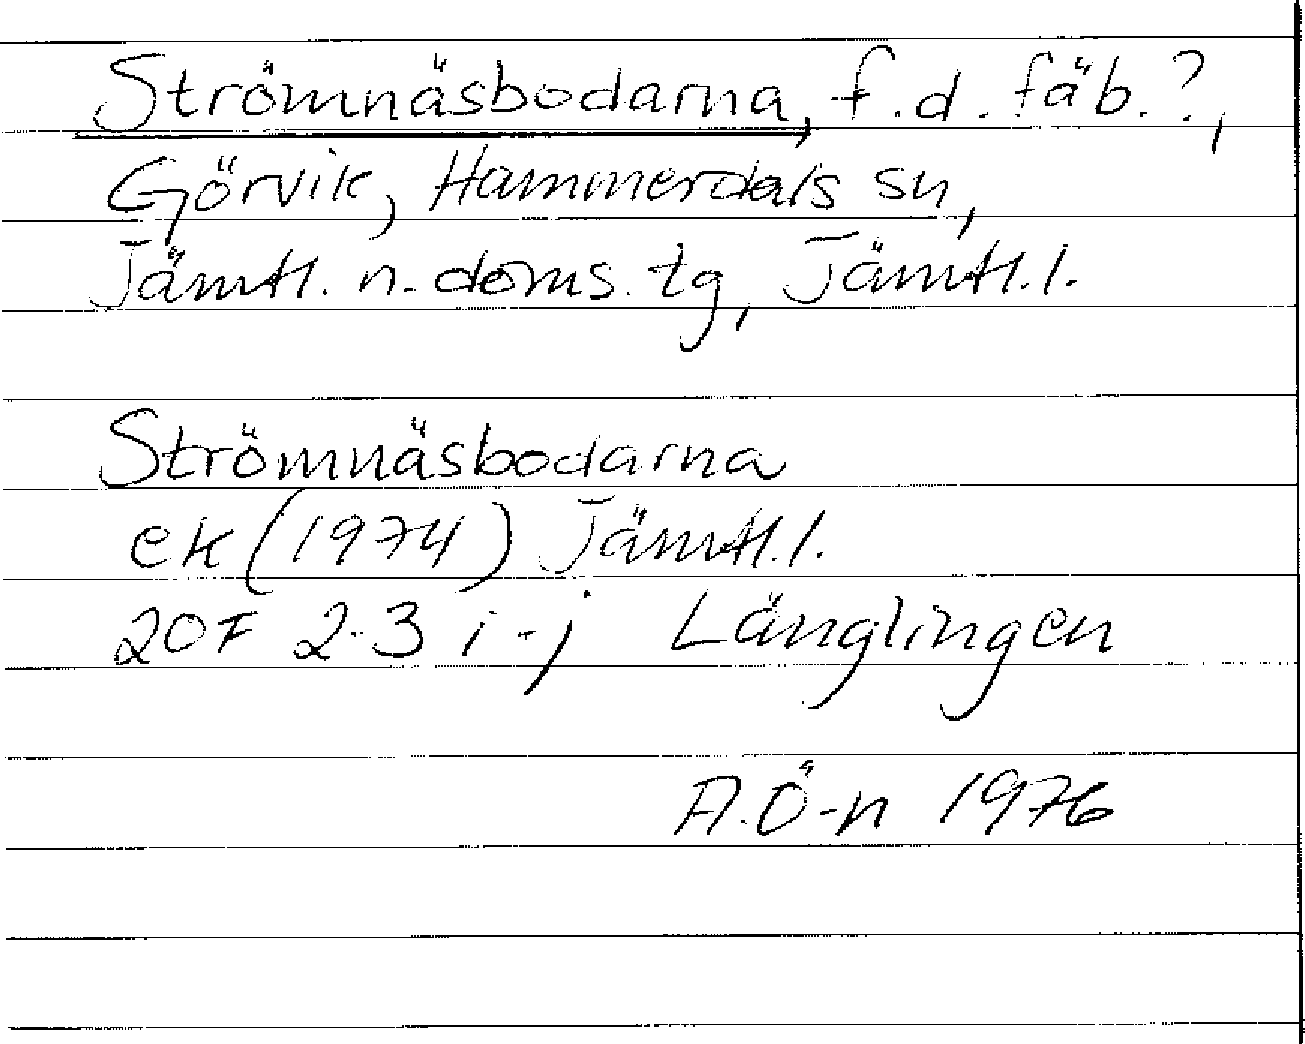 Strömnäsbodarna, f.d. fäb.?,
Görvik, Hammerdals sn,
Jämtl. n. doms. tg, Jämtl. l.
Strömnäsbodarna
ek (1974) Jämtl. l.
20F 2-3 i-j Länglingen
A.Ö-n 1976